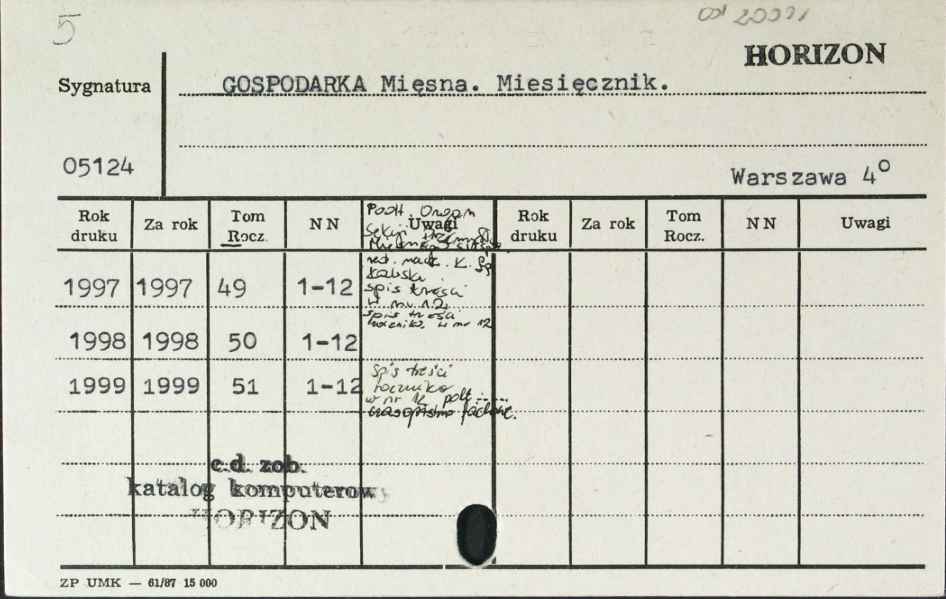 5
od 2000
HORIZON
Sygnatura
GOSPODARKA Mięsna. Miesięcznik.
05124
Warszawa 4°
Rok druku Za rok Tom Rocz. NN Uwagi Rok druku Za rok Tom Rocz. NN Uwagi
Podt. Organ
Sekcji
red. nacz. K.
1997 1997 49 1-12 spis treści
w nr 12.
spis treści
rocznika w nr 12
1998 1998 50 1-12
spis treści
1999 1999 51 1-12 rocznika
w nr 12 podt.
czasopismo fachowe.
c.d. zob.
katalog komputerowy
HORIZON
ZP UMK — 61/87 15 000